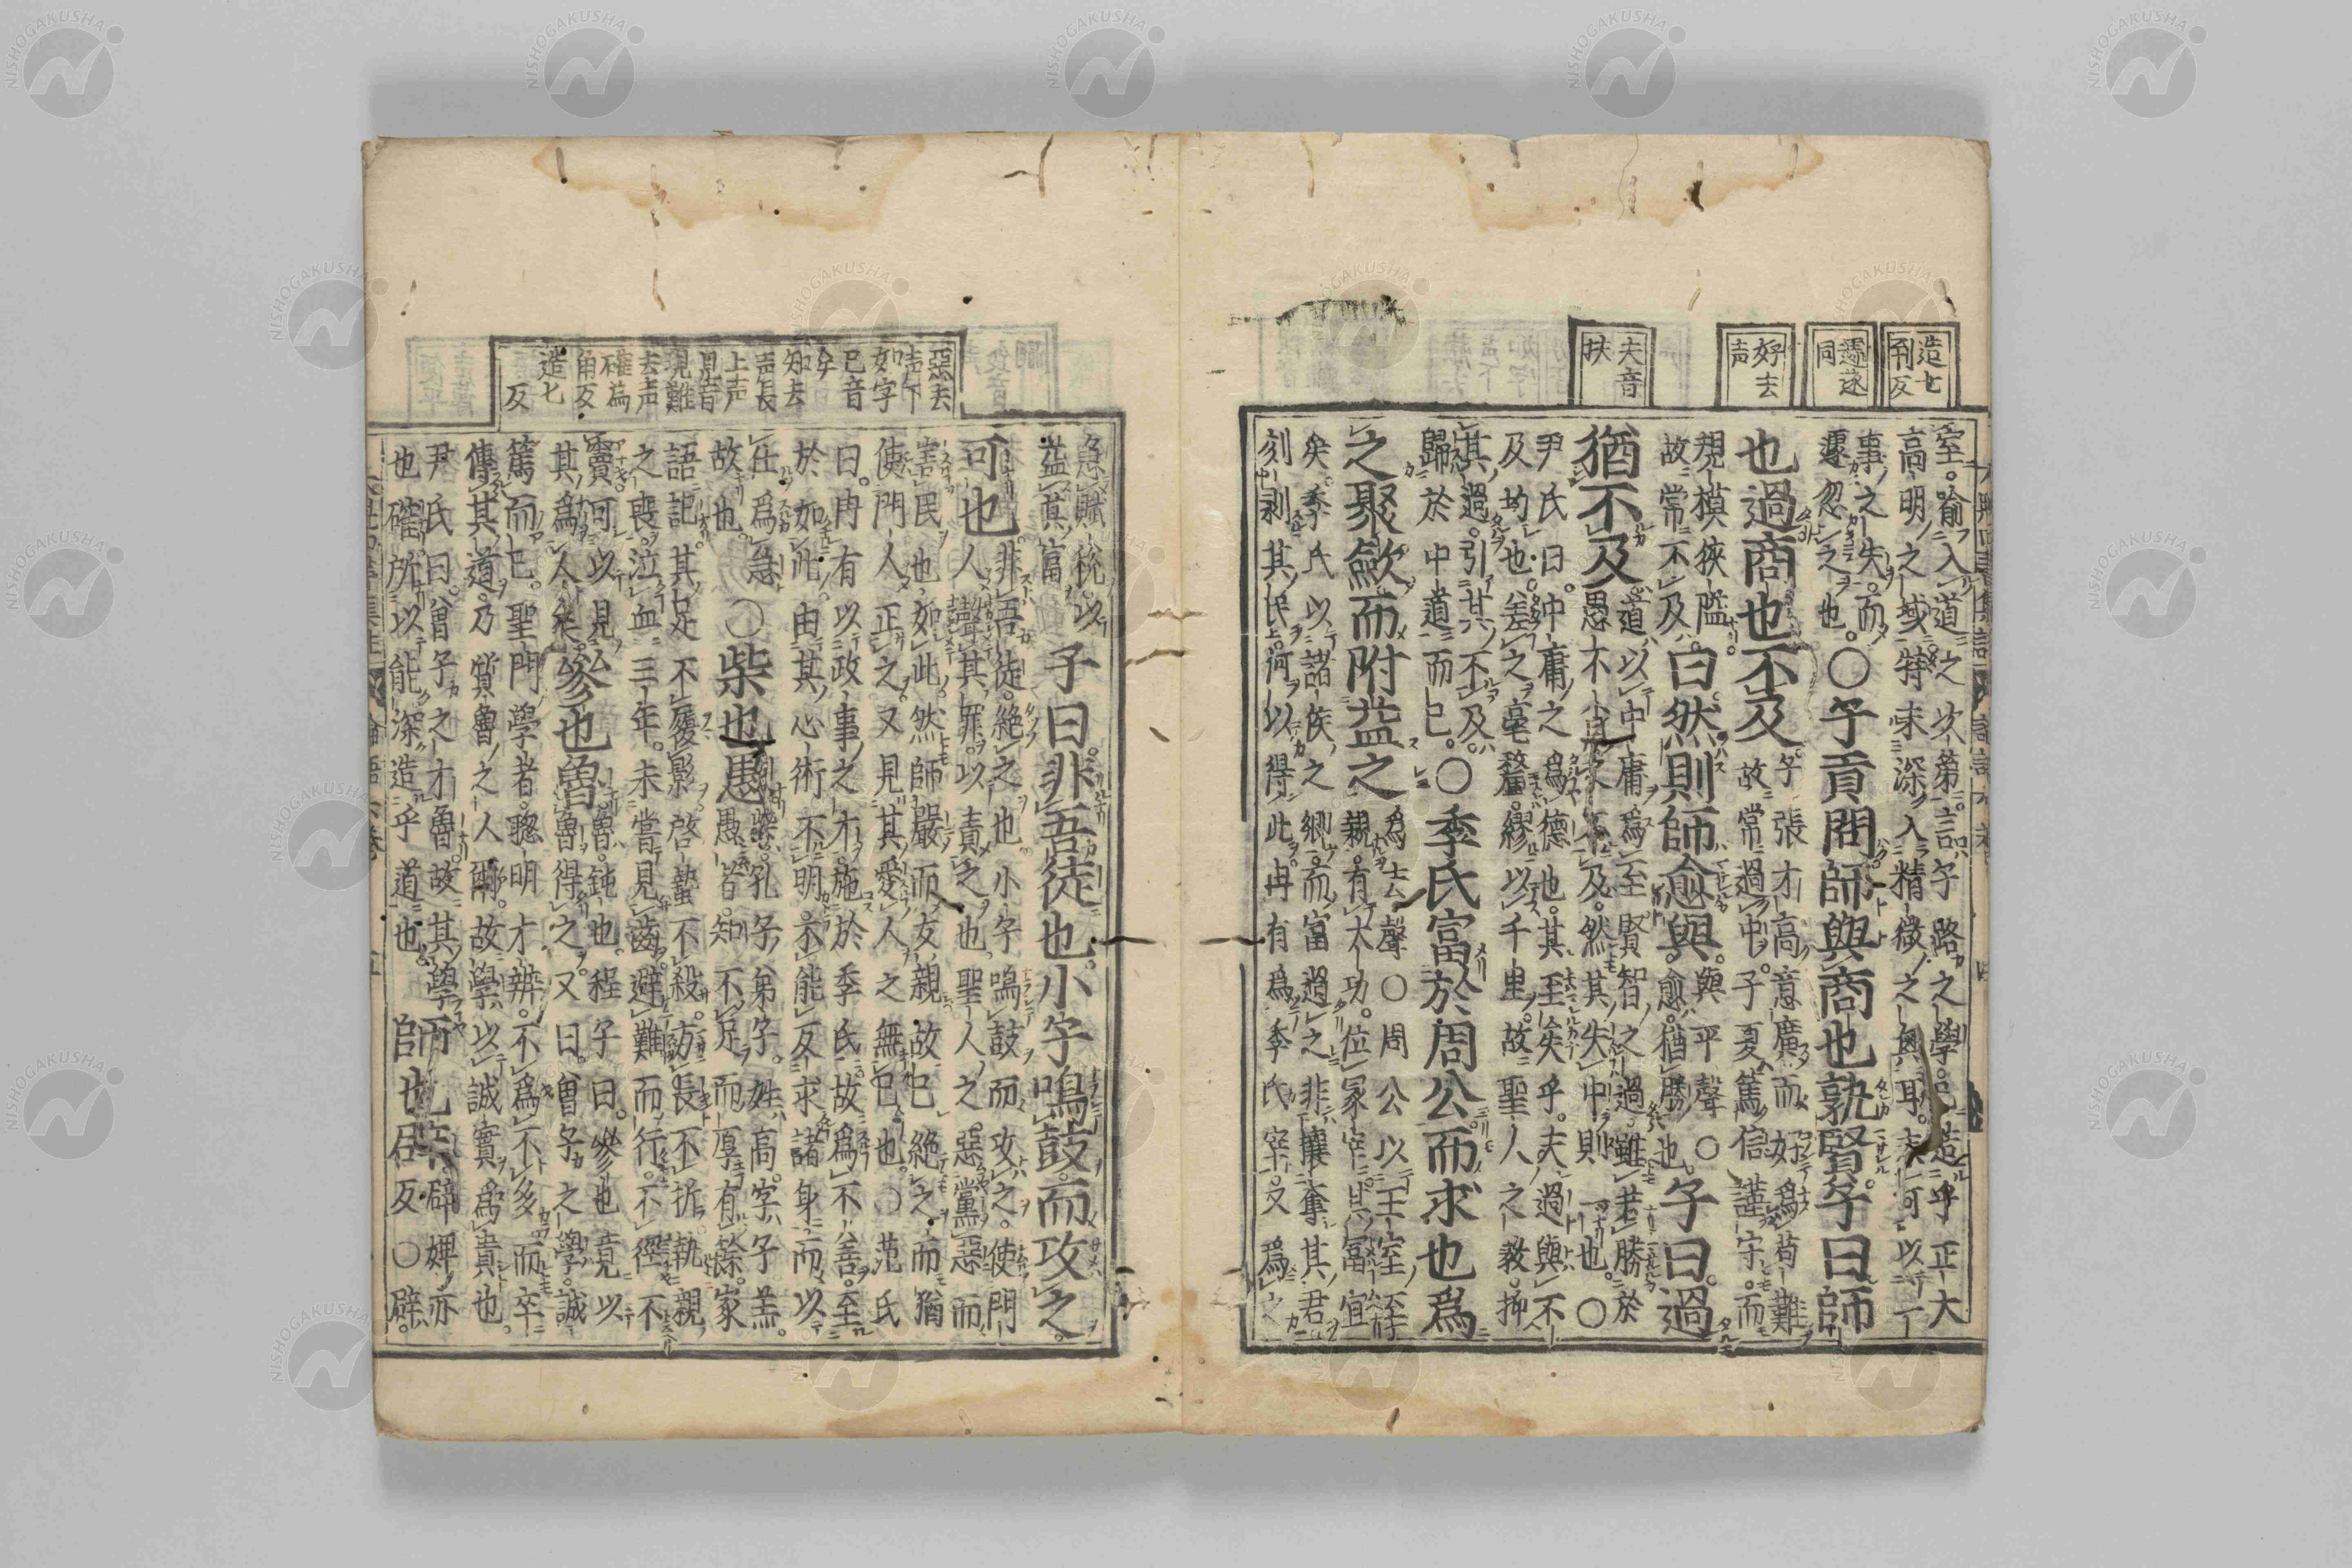 造七
刊反
遽遂
同
好去
声
夫音
扶
室。喻入道之次第。言子路之學。已造乎正大
高明之域。特未深入精微之奧耳。未可以一
事之失。而
遽忽之也。〇子貢問師與商也孰賢。子曰師
也過商也不及。子張才高意廣。而好爲苟難
故常過中。子夏篤信謹守。而
規模狹隘。
故常不及。曰然則師愈與。與平聲〇
愈猶勝也。子曰。過
猶不及。道以中庸爲至。賢智之過。雖若勝於
愚不肖之不及。然其失中則一也。〇
尹氏曰。中庸之爲德也。其至矣乎。夫過與不
及均也。差之毫釐。繆以千里。故聖人之敎。抑
其過。引其不及。
歸於中道而已。〇季氏富於周公。而求也爲
之聚歛而附益之。爲去聲〇周公以王室至
親。有大功。位冢宰。其富宜
矣。季氏以諸侯之卿。而富過之。非攘奪其君
刻剥其民。何以得此。冉有爲季氏宰。又爲之
惡去
声下
如字
已音
矣
知去
声長
上声
見音
現難
去声
確為
角反
造七
反
急賦稅。以
益其富。子曰。非吾徒也。小子鳴鼓而攻之。
可也。非吾徒。絶之也。小子鳴鼓而攻之。使門
人聲其罪。以責之也。聖人之。惡黨惡而
害民也如此。然師嚴而友親。故已絶之。而猶
使門人正之。又見其愛人之無已也。〇范氏
曰。冉有以政事之才。施於季氏。故爲不善。至
於如此。由其心術不明。不能反求諸身。而以
仕爲急
故也。〇柴也愚。柴。孔子弟子。姓高。字子羔。
愚者。知不足而厚有餘。家
語記其足不履影。啓蟄不殺。方長不折。執親
之喪。泣血三年。未嘗見齒。避難而行。不徑不
竇。可以見
其爲人矣。參也魯。魯。鈍也。程子曰。參也竟以
魯得之。又曰。曾子之學。誠
篤而已。聖門學者。聰明才辨。不爲不多。而卒
傳其道。乃質魯之人爾。故學以誠實爲貴也。
尹氏曰。曾子之才魯。故其學
也確。所以能深造乎道也。師也辟。辟婢亦
反〇辟。